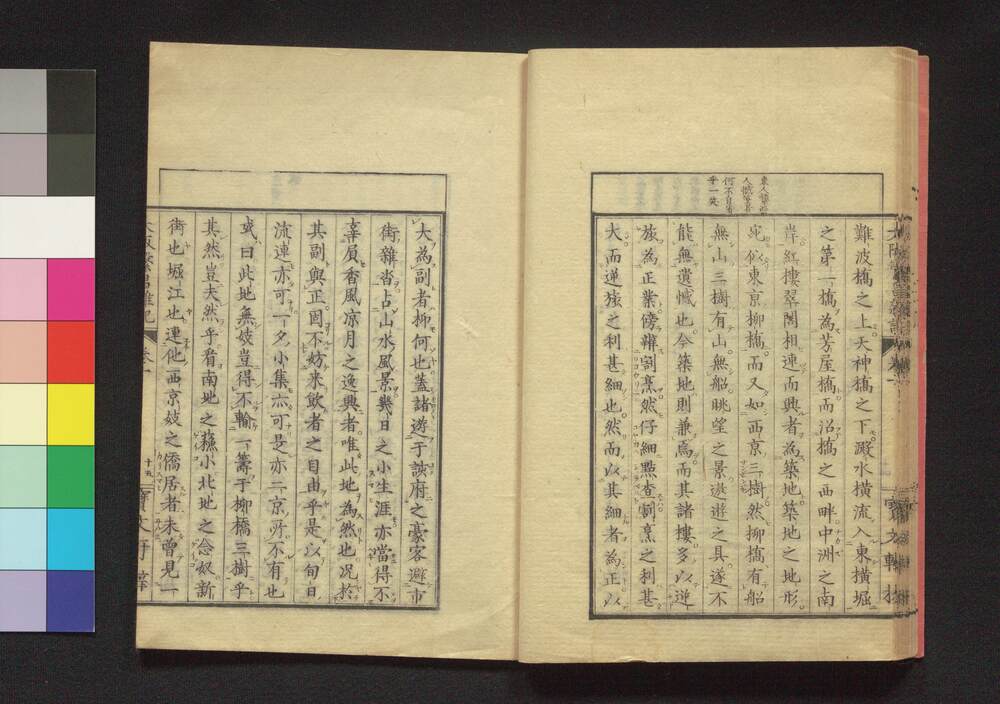 難波橋之上天神橋之下澱水橫流入東橫堀
之第一橋為芳屋橋而沼橋之西畔中洲之南
岸紅樓翠閣相連而興者為築地築地之地形
宛似東京柳橋而又如西京三樹然柳橋有船
無山三樹有山無船眺望之景遨遊之具遂不
能無遺憾也今築地則兼焉而其諸樓多以逆
旅為正業傍辨割烹然仔細點查割烹之利甚
大而逆旅之利甚細也然而以其細者為正以
大為副者抑何也蓋諸遊于該府之豪客避市
街雜沓占山水風景幾日之小生涯亦當得不
辜負香風凉月之逸興者唯此地為然也況於
其副與正固不妨來飲者之自由乎是以旬日
流連亦可一夕小集亦可是亦二京所不有也
或曰此地無妓豈得不輸一籌于柳橋三樹乎
其然豈夫然乎看南地之蘓小北地之念奴新
街也堀江也連他西京妓之僑居者未曾見一
十五